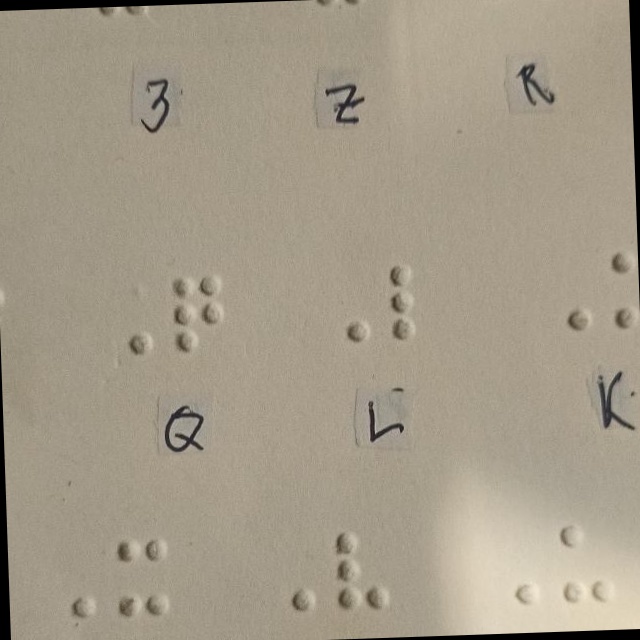 3 Z R
⠠⠟ ⠠⠇ ⠠⠅
Q L K
⠠⠭ ⠠⠧ ⠠⠥